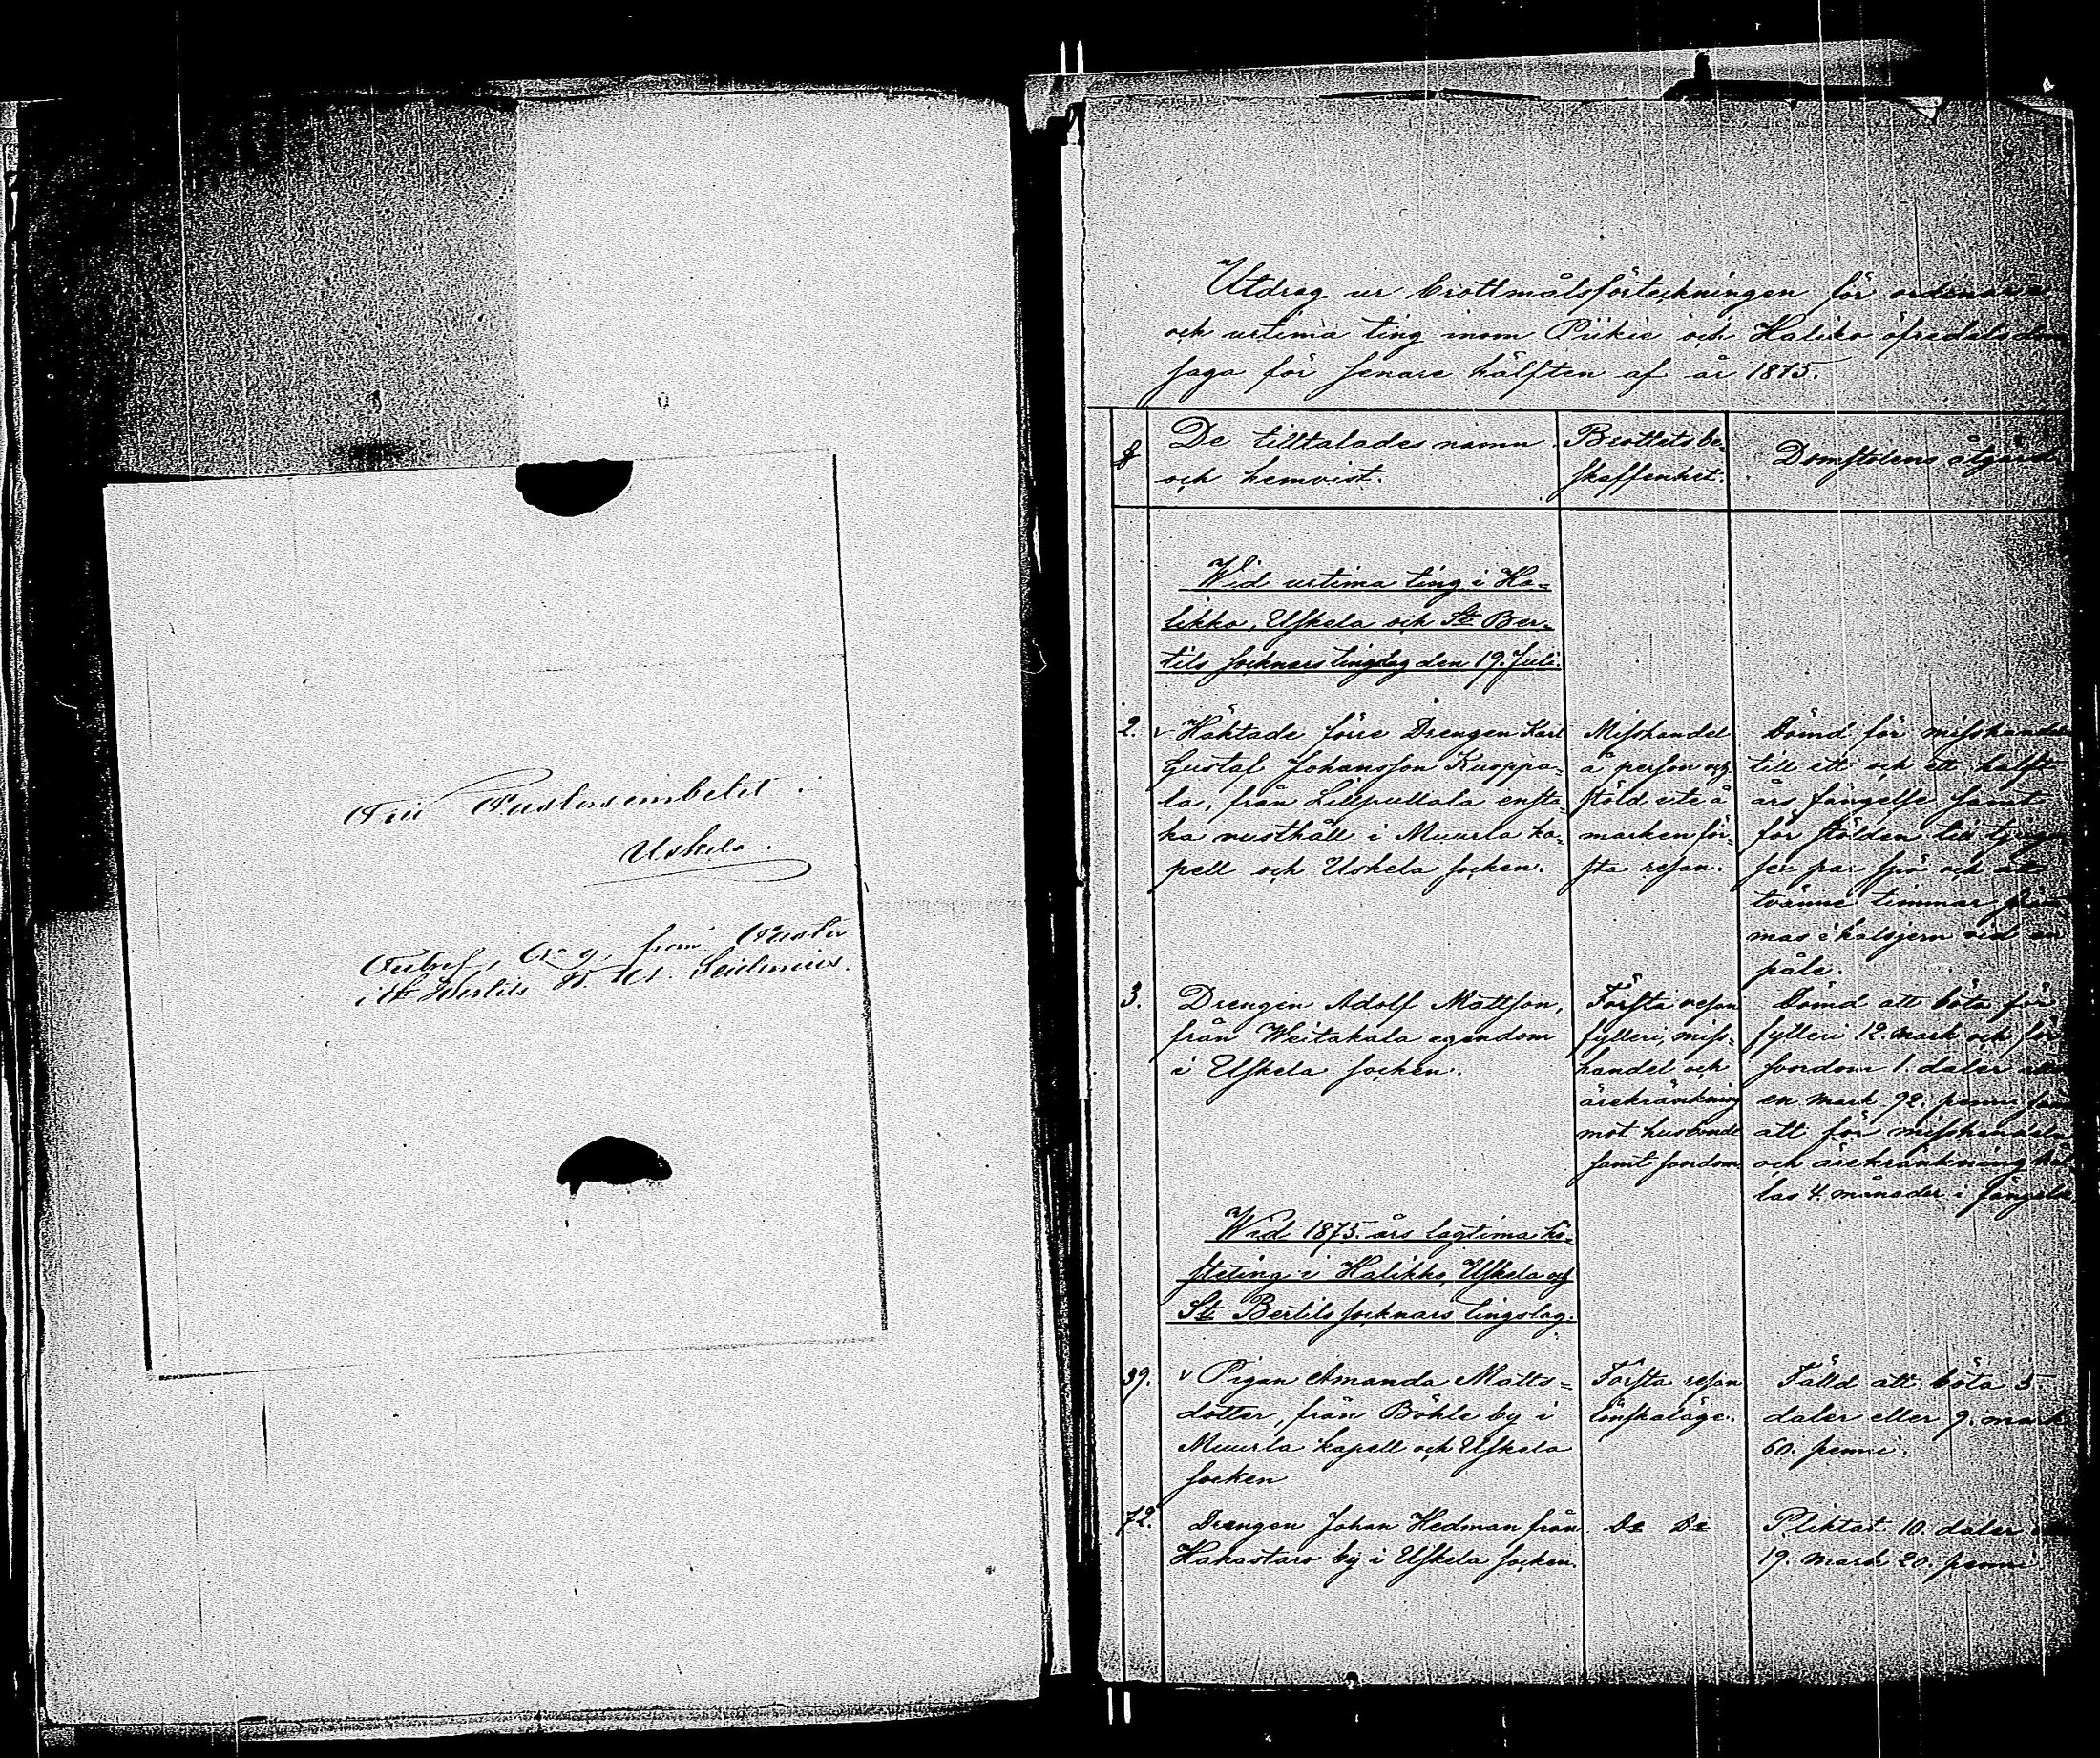 Till Pastorsembetet
Uskela.
i St Bertils
Utdrag ur brottmålsförteckningen för ordinarie
och urtima ting inom Piikie och Haliko öfredels dom
saga för senare hälften af år 1875.
§
De tilltalades namn
och hemvist.
Brottets be-
skaffenhet.
Domstolens åtgärd
Wid urtima ting i Ha-
likko, Uskela och St Ber-
tils socknars tingslag den 19. Juli.
2. v Häktade förre Drengen Karl
Gustaf Johansson Kuoppa-
la, från Lillputtola ensta-
ka rusthåll i Muurla ka-
pell och Uskela socken.
Misshandel
å person och
stöld ute å
marken för-
sta resan.
Dömd för misshandel
till ett och ett halft
års fängelse samt
för stölden till tjugu
sex par spö och att
tvänne timmar skäm
mas i halsjern vid en
påle.
3. Drengen Adolf Mattsson,
från Weitakala egendom
i Uskela socken.
Första resan
fylleri, miss-
handel och
ärekränkning
mot husbonde
samt svordom.
Dömd att böta för
fylleri 12. mark och för
svordom 1. daler eller
en mark 92. penni samt
att för misshandel
och ärekränkning hål
las 4 månader i fängelse.
Wid 1875. års lagtima hö-
steting i Halikko, Uskela och
St Bertils socknars tingslag.
39. v Pigan Amanda Matts-
dotter, från Böhle by i
Muurla kapell och Uskela
socken
Första resan
lönskaläge.
Fälld att böta 5
daler eller 9. mark
60. penni.
72. Drengen Johan Hedman från
Hakastaro by i Uskela socken.
Do Do
Pliktat 10. daler eller
19. mark 20. penni